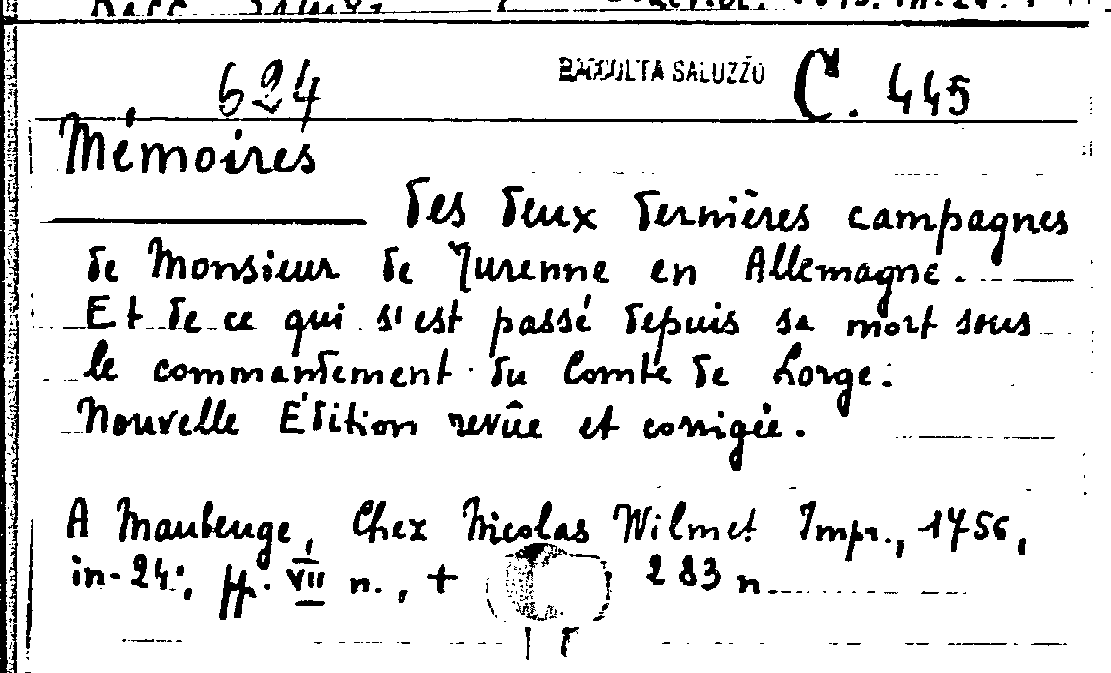 624 RACCOLTA SALUZZO C. 445
Mémoires
des deux dernières campagnes
de Monsieur de Turenne en Allemagne.
Et de ce qui s'est passé depuis sa mort sous
le commandement du Comte de Lorge.
Nouvelle Édition revûe et corrigée.
A Maubeuge, Chez Nicolas Wilmet Impr., 1756,
in-24°, ff. VII n., + 283 n.